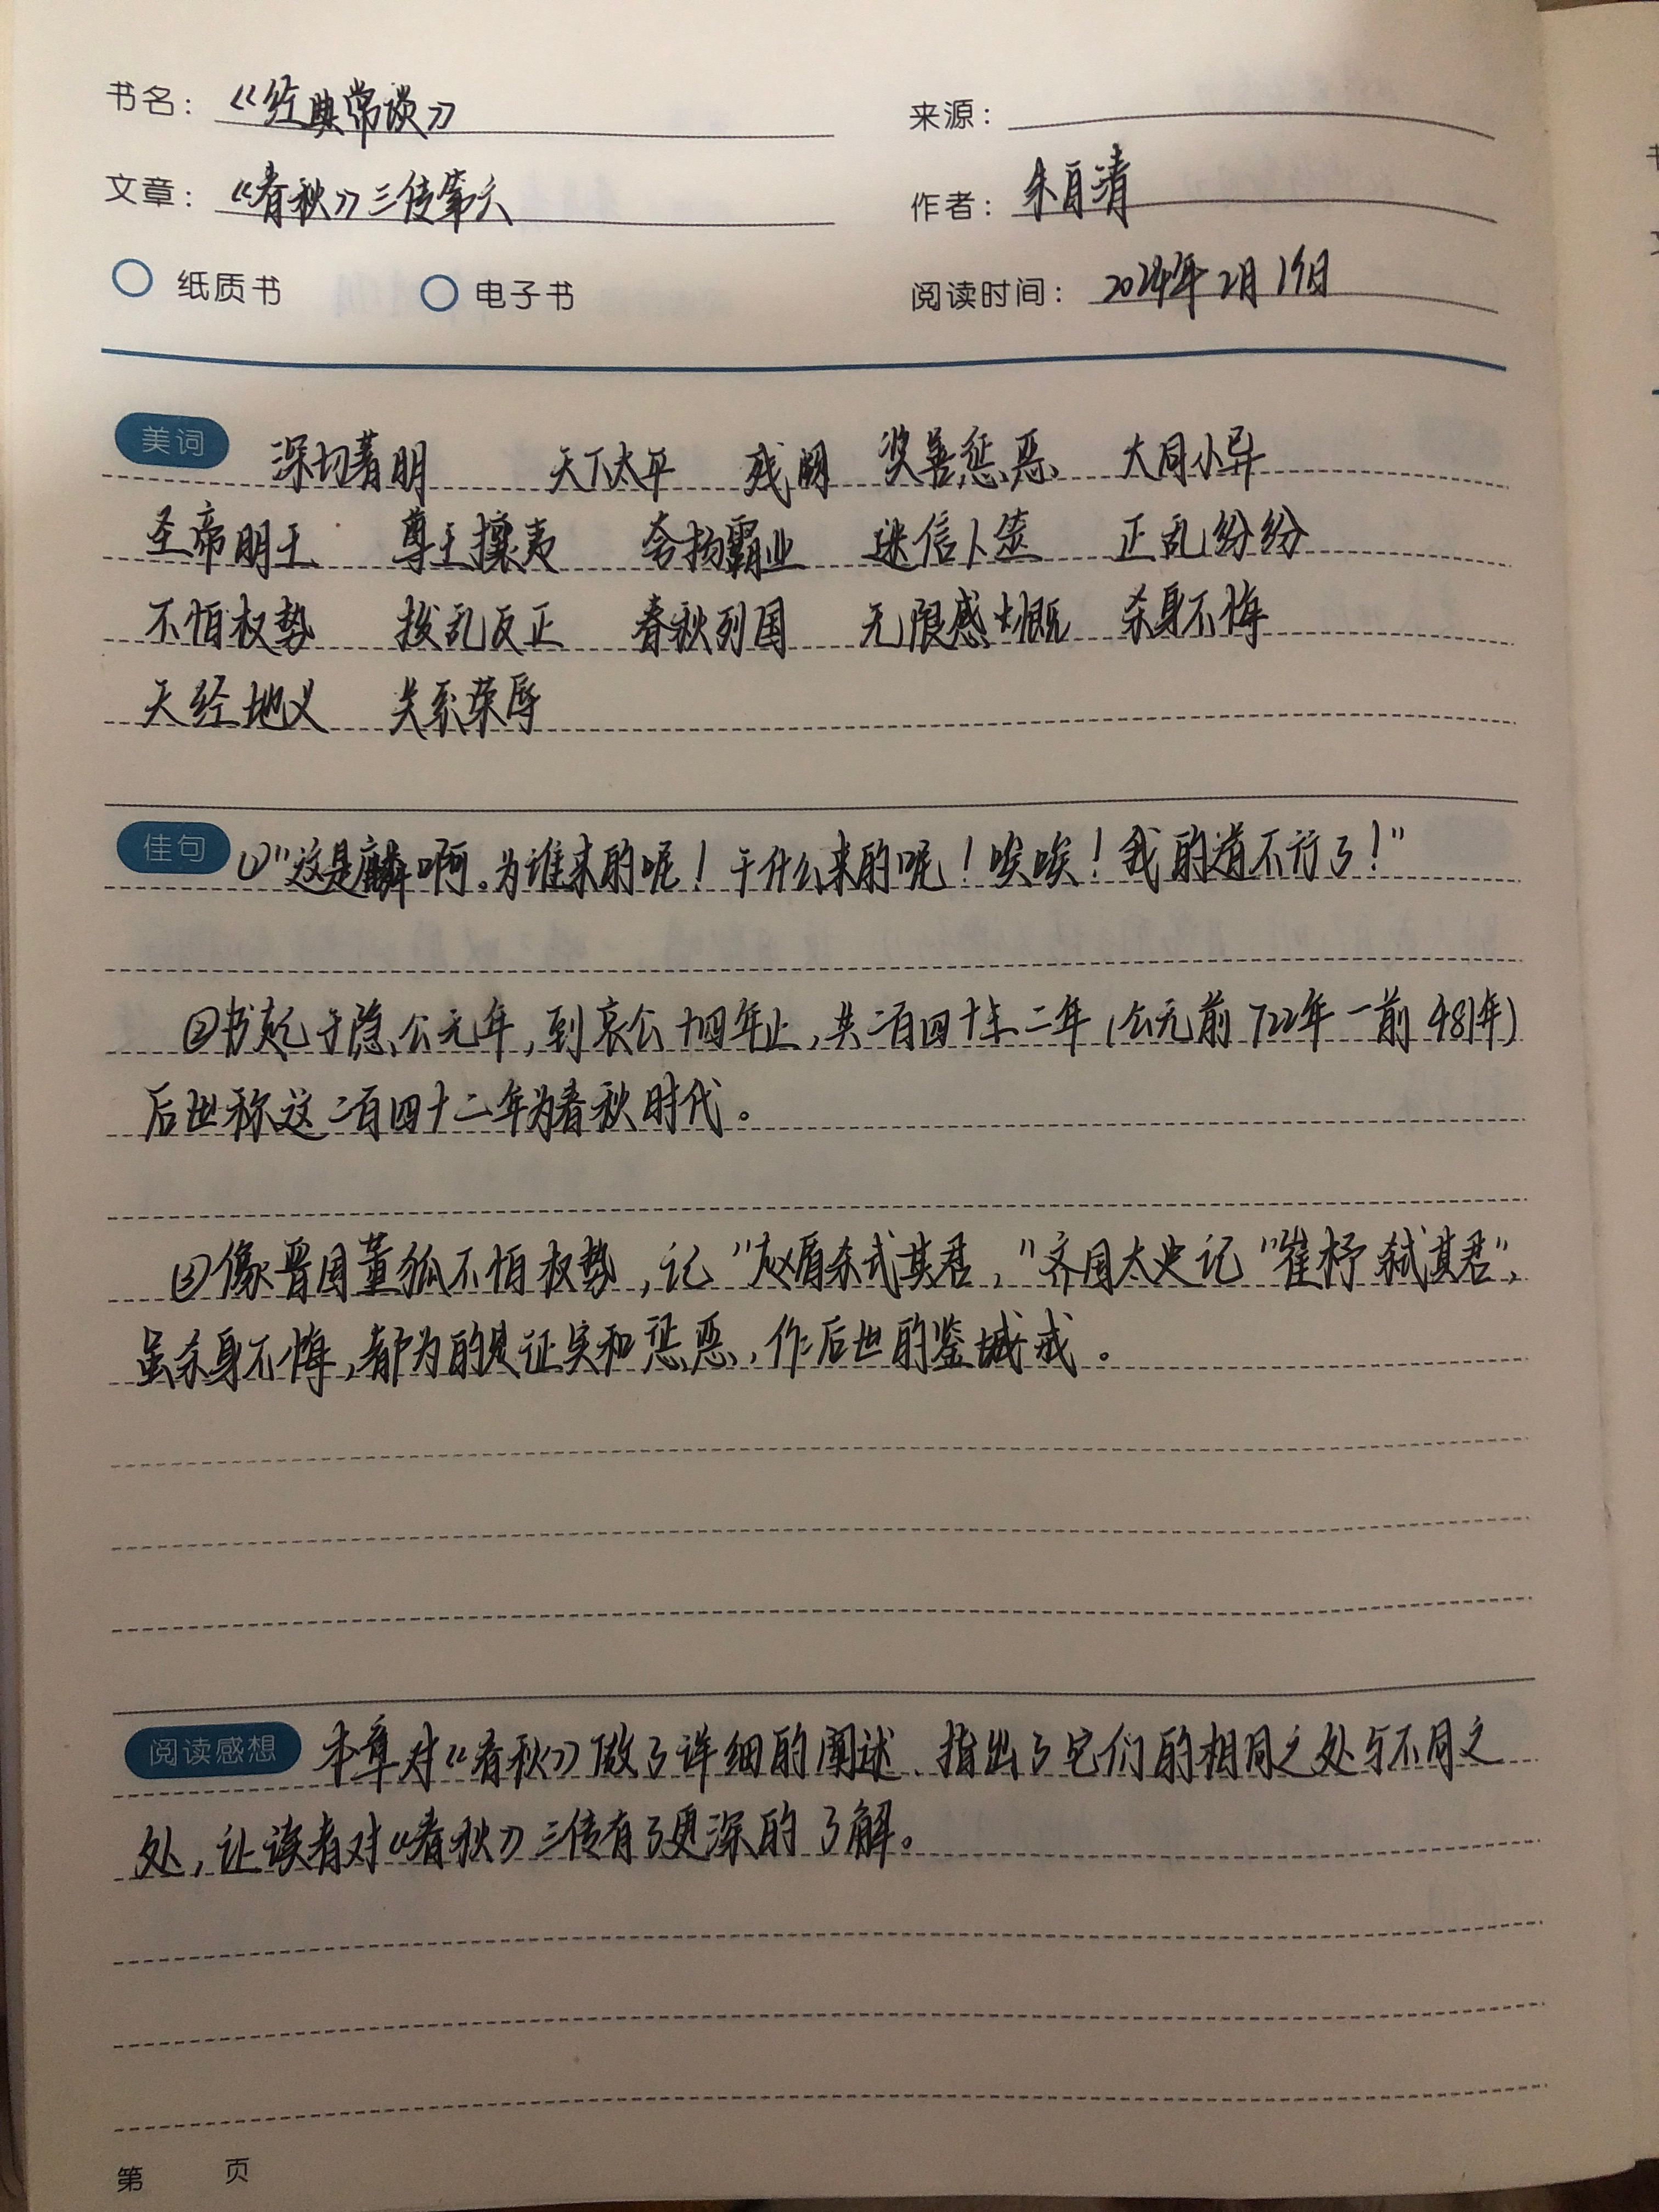 书名： 《经典常谈》 来源：
文章： 《春秋》三传第六 作者： 朱自清
纸质书 电子书 阅读时间： 2024年2月19日
美词 深切著明 天下太平 残阙 奖善惩恶 大同小异
圣帝明王 尊王攘夷 夸扬霸业 迷信卜筮 正乱纷纷
不怕权势 拨乱反正 春秋列国 无限感慨 杀身不悔
天经地义 关系荣辱
佳句 ①"这是麟啊。为谁来的呢！干什么来的呢！唉唉！我的道不行了！"
②书起于隐公元年，到哀公十四年止，共二百四十二年（公元前722年—前481年）
后世称这二百四十二年为春秋时代。
③像晋国董狐不怕权势，记"赵盾弑其君，"齐国太史记"崔杼弑其君"，
虽杀身不悔，都为的是证实和惩恶，作后世的鉴戒。
阅读感想 本章对《春秋》做了详细的阐述、指出了它们的相同之处与不同之
处，让读者对《春秋》三传有了更深的了解。
第 页